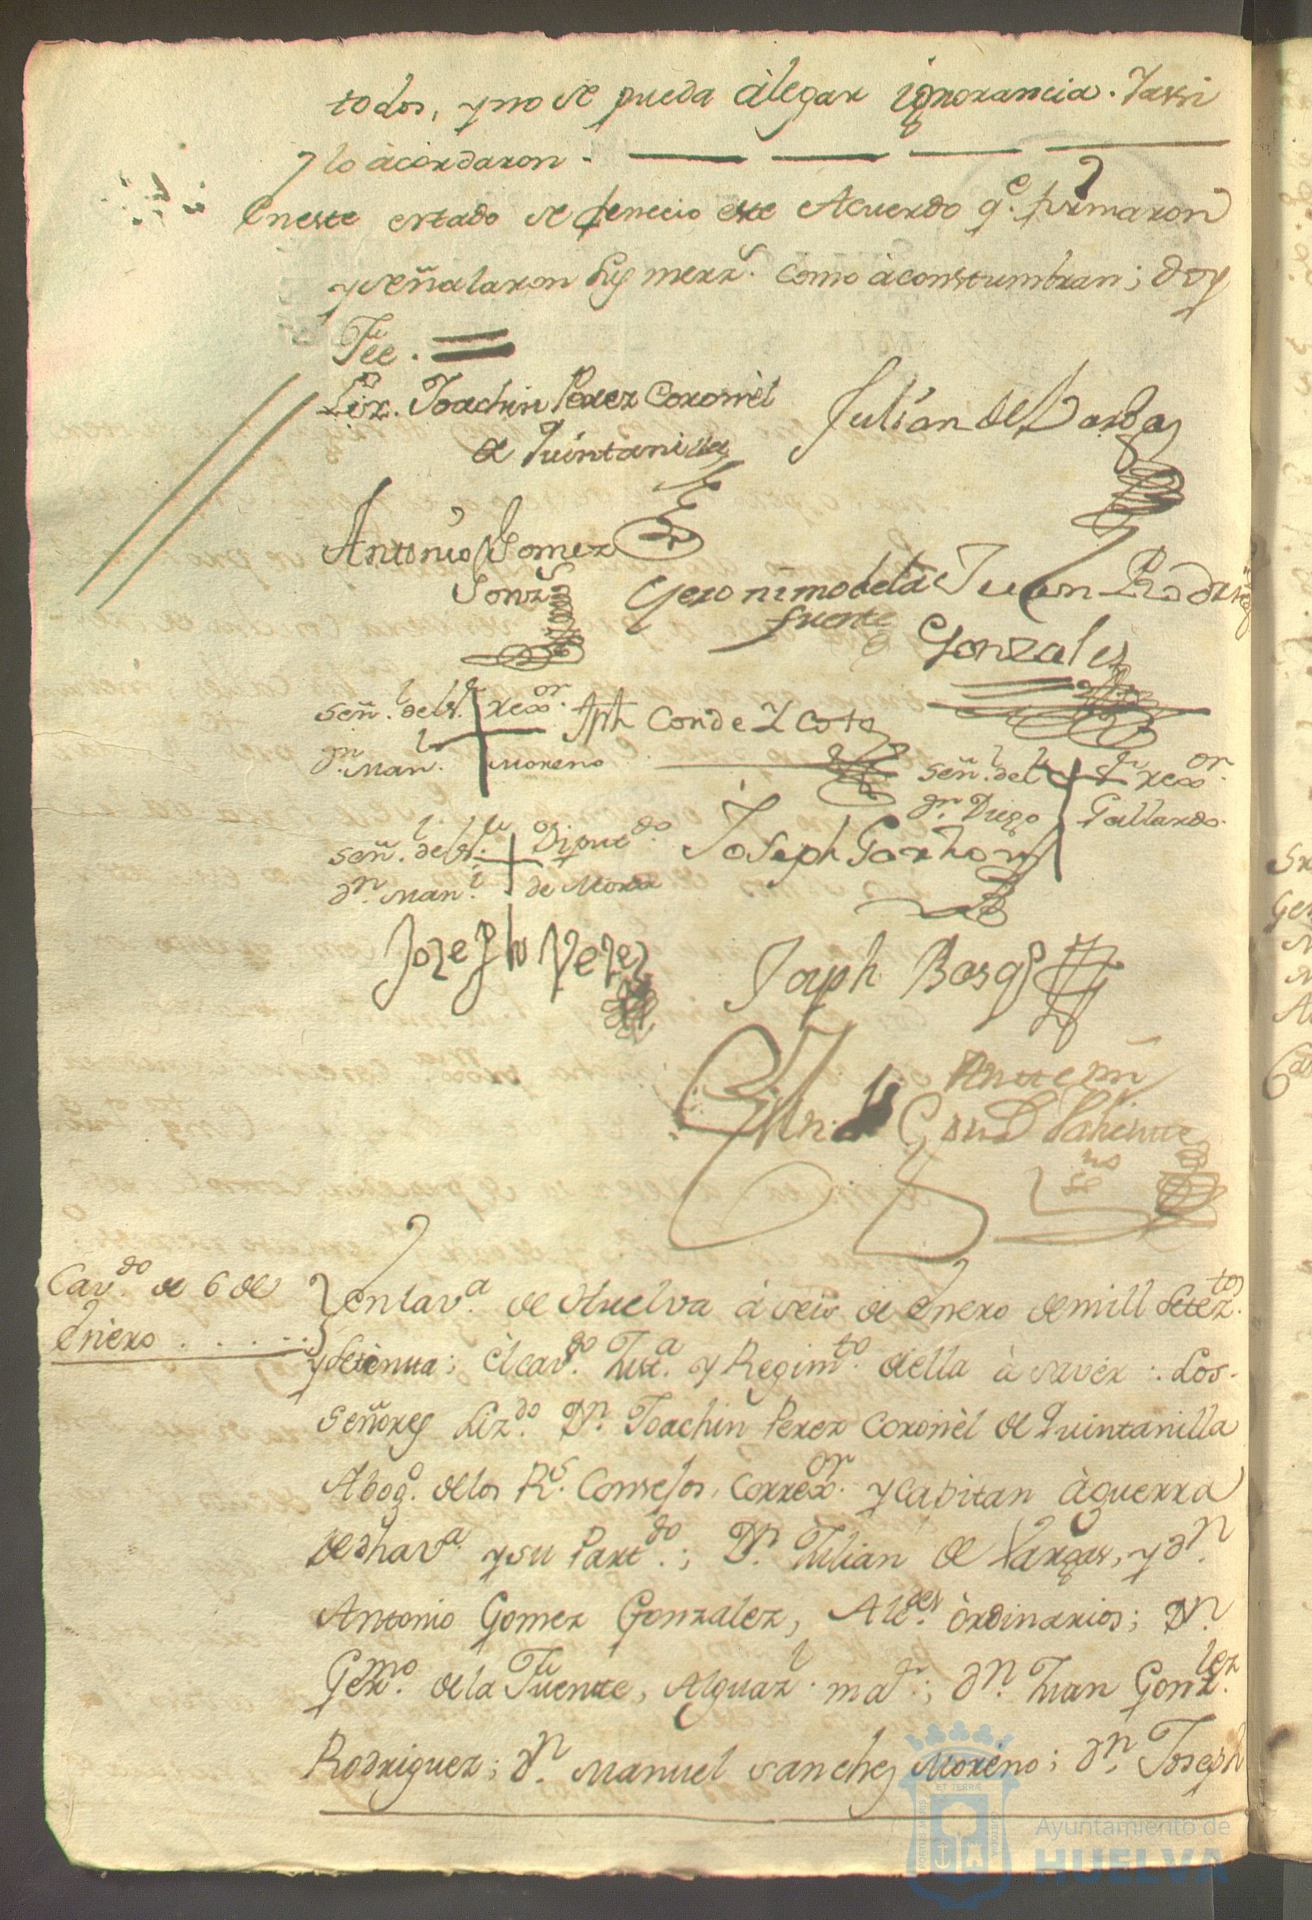 todos, y no se pueda àlegar ignorancia. Yassi
lo àcordaron.
Eneste estado se fenecio este Acuerdo q.e firmaron
y señalaron sus merz.s como àconstumbran; doy
Fee.
Liz.do Joachin Perez Coronèl
de Quintanilla
Julian de Barga
Antonio Gomez
Gonz.s
Geronimo dela
fuente
Juan Rodrig
Gonzales
señ.l del S.r rexor.
Jph Conde Y Coto
d.n Man.l Moreno
señ.l del S.r rexor.
d.n Diego Gallardo
señ.l del S.r Diput.do
d.n Man.l de Mora
Joseph Garzon
Jozeph Velez
Joseph Borg
Ante mi
Cav.do de 6 de
Enero
En la v.a de Huelva à seis de Enero de mill setez.tos
y setenta; èl cav.do Just.a y Regim.to de ella à saver: Los
señores Liz.do D.n Joachin Perez Coronèl de Quintanilla
Abog.o de los R.s Consejos, Correx.or y Capitan àguerra
de dha v.a y su Part.do; D.n Julian de Vargas, y d.n
Antonio Gomez Gonzalez, Alc.des òrdinarios; D.n
Ger.mo de la Fuente, Alguaz.l ma.r; d.n Juan Gonz.lez
Rodriguez; d.n Manuel Sanchez Morèno; d.n Joseph
ET TERRÆ
Ayuntamiento de
HUELVA